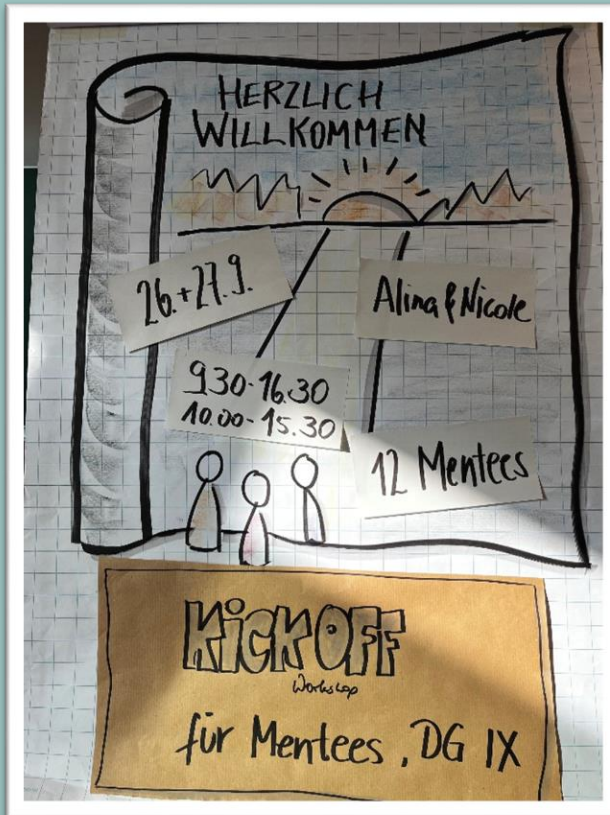 HERZLICH
WILLKOMMEN
26.+27.9.
Alina & Nicole
9.30-16.30
10.00-15.30
12 Mentees
KICK OFF
Workshop
für Mentees, DG IX